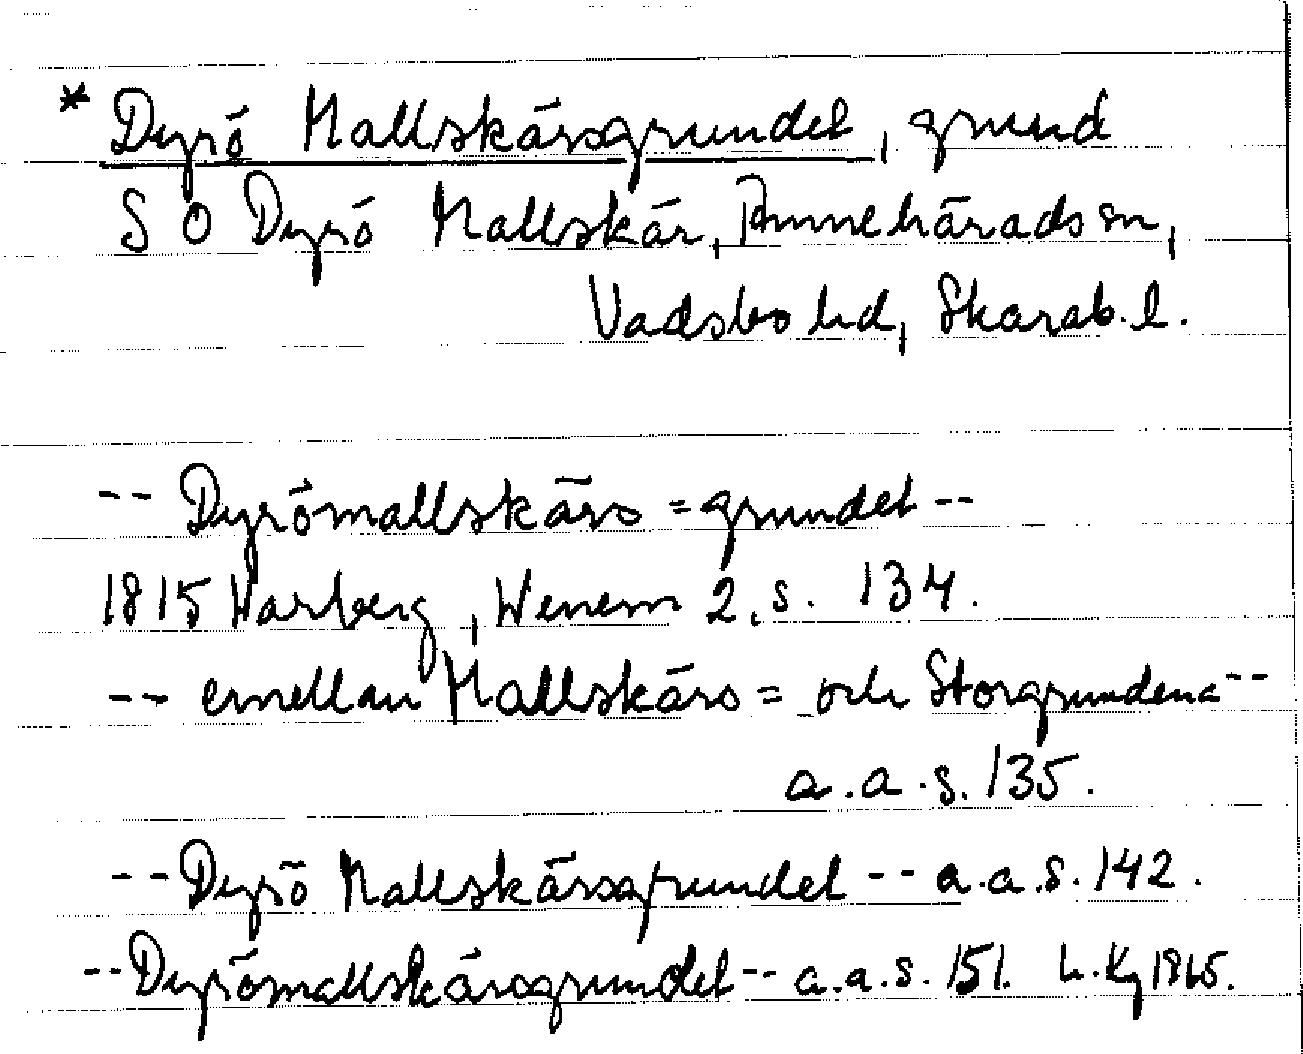 * Dyrö Mallskärsgrundet, grund
S O Dyrö Mallskär, Amnehärads sn,
Vadsbo hd, Skarab. l.
-- Dyrömallskärs=grundet --
1815 Warberg, Wenern 2, s. 134.
-- emellan Mallskärs= och Storgrundena --
a.a.s. 135.
-- Dyrö Mallskärsgrundet -- a.a.s. 142.
-- Dyrömallskärsgrundet -- a.a.s. 151.